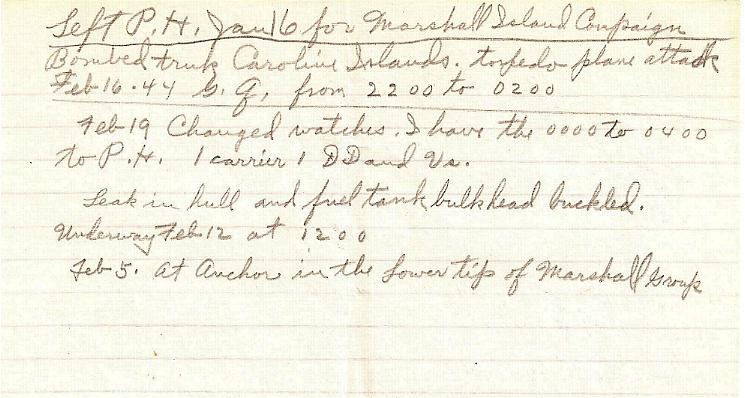 Left P.H. Jan 16 for Marshall Island Conpaign
Bombed truk Caroline Islands. torpedo plane attack
Feb-16-44 G.Q, from 2200 to 0200
Feb-19 Changed watches. I have the 0000 to 0400
to P.H. 1 carrier 1 DD and Us.
Leak in hull and fuel tank bulkhead buckled.
Underway Feb 12 at 1200
Feb 5. at Anchor in the Lower tip of Marshall Group